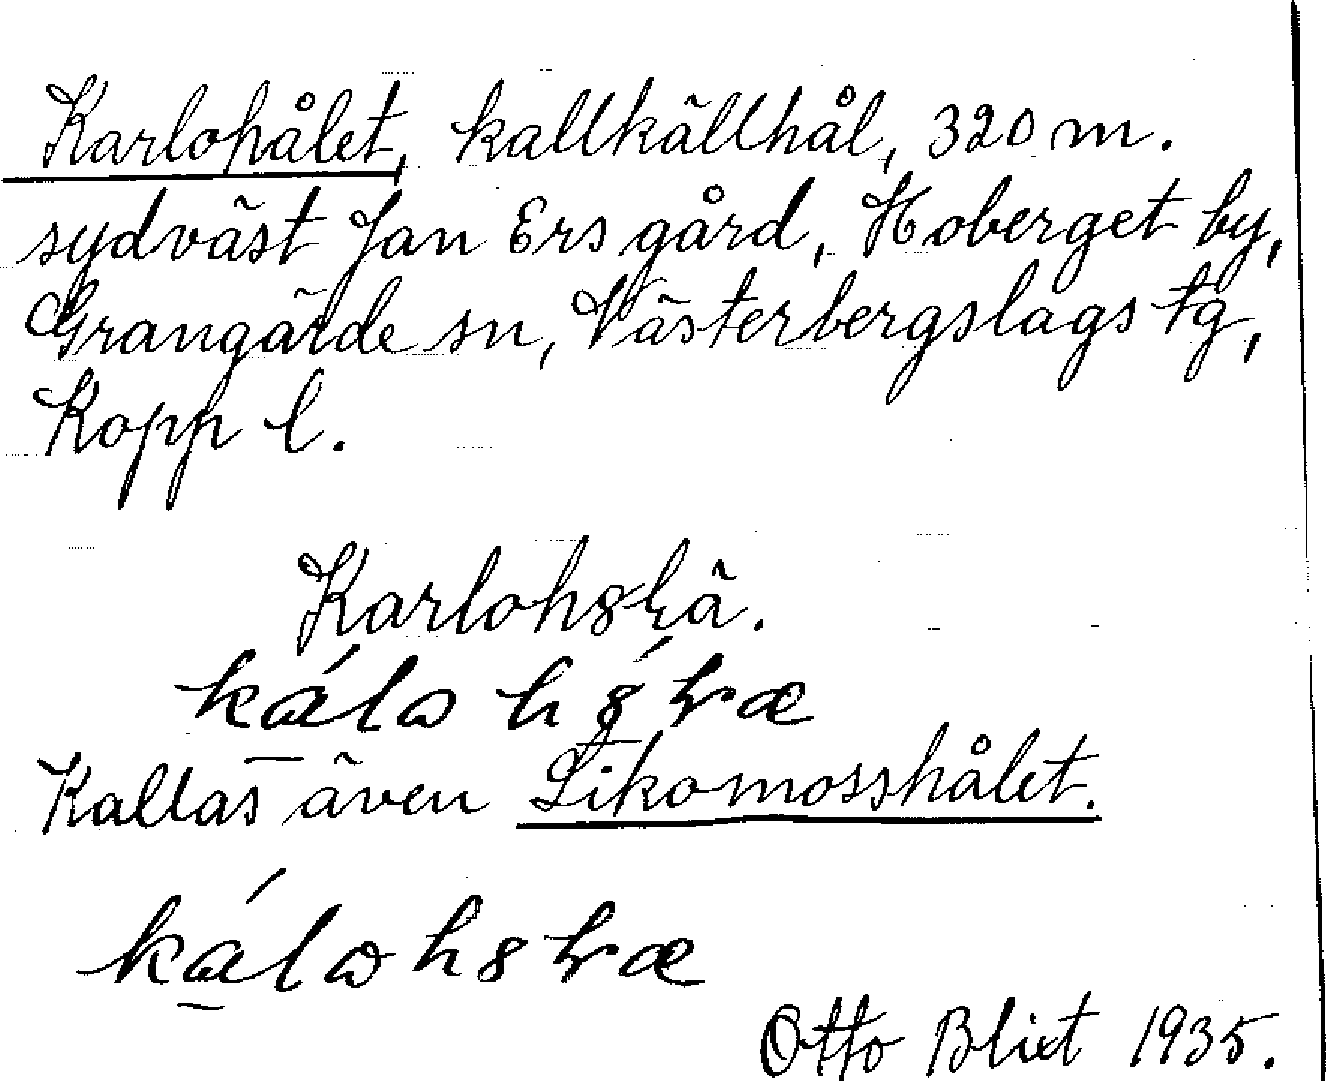 Karlohålet, kallkällhål, 320 m.
sydväst Jan Ers gård, Hoberget by,
Grangärde sn, Västerbergslags tg,
Kopp l.
Karloh8kä.
Kallas även Likomosshålet.
Otto Blixt 1935.